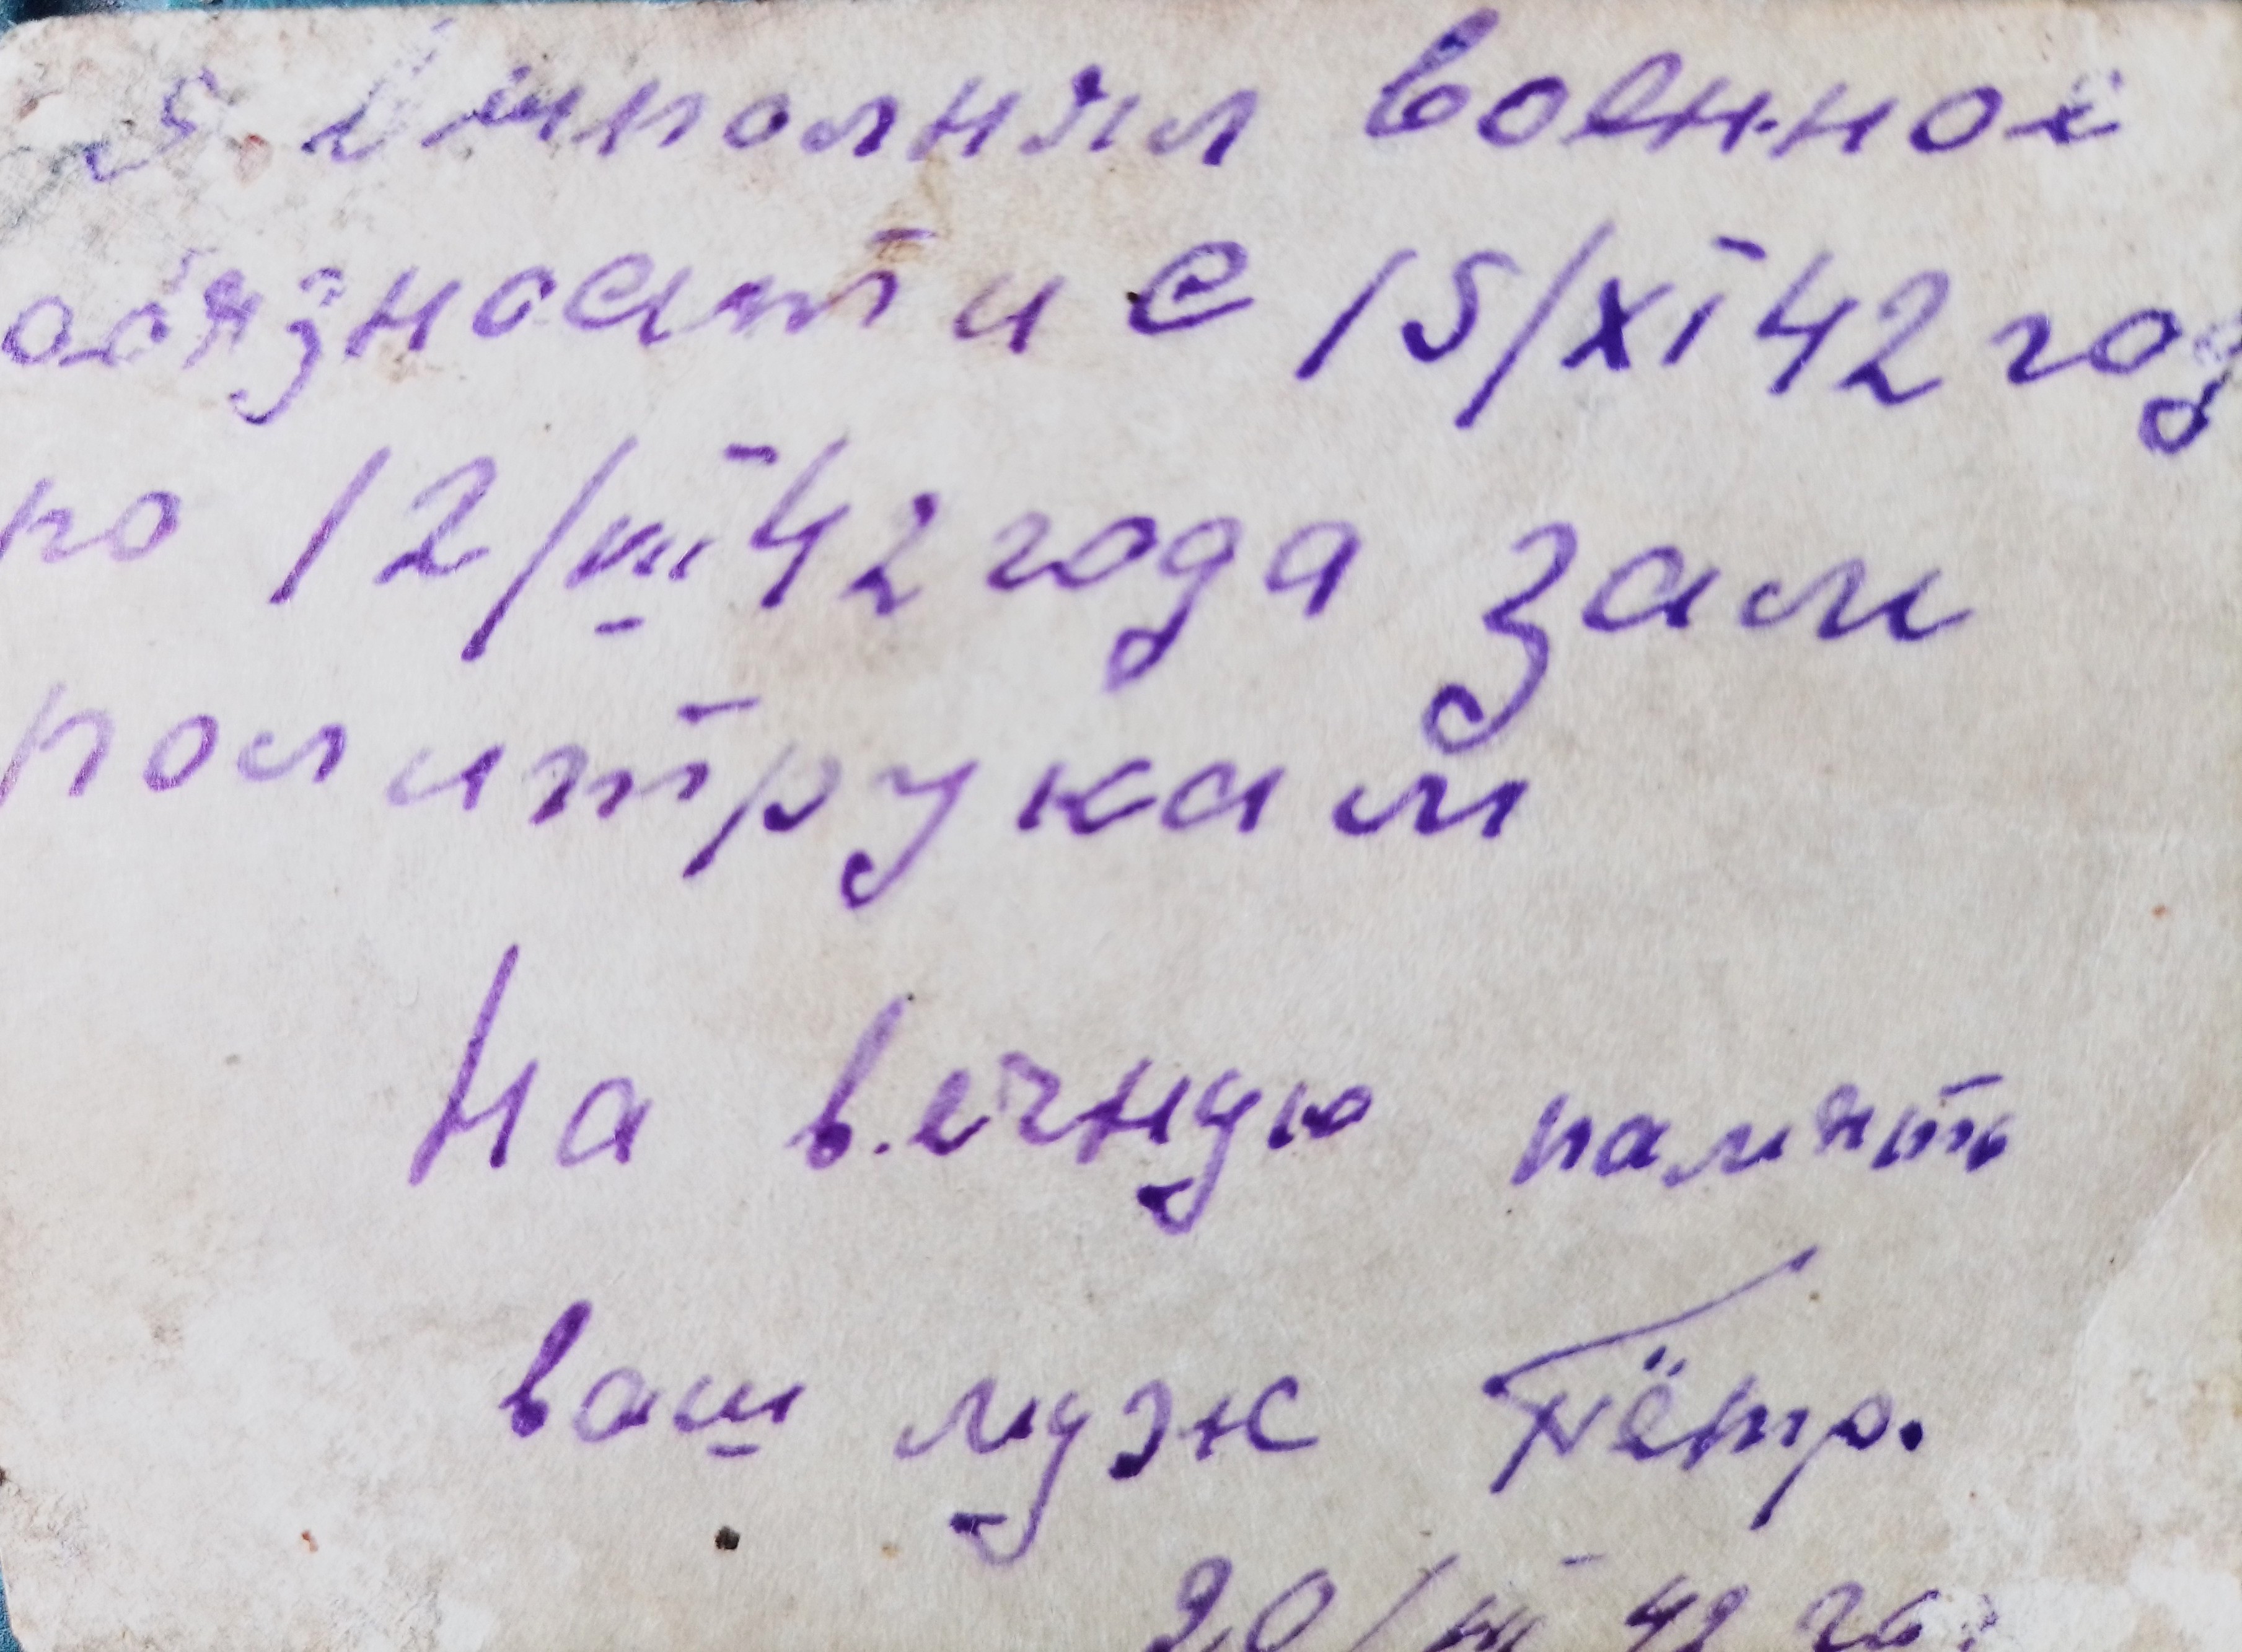 Я выполнял военной
обязности с 15/XI 42 год
по 12/III 42 года зам
политрукам
На вечную память
ваш муж Пётр.
20/III 42 го